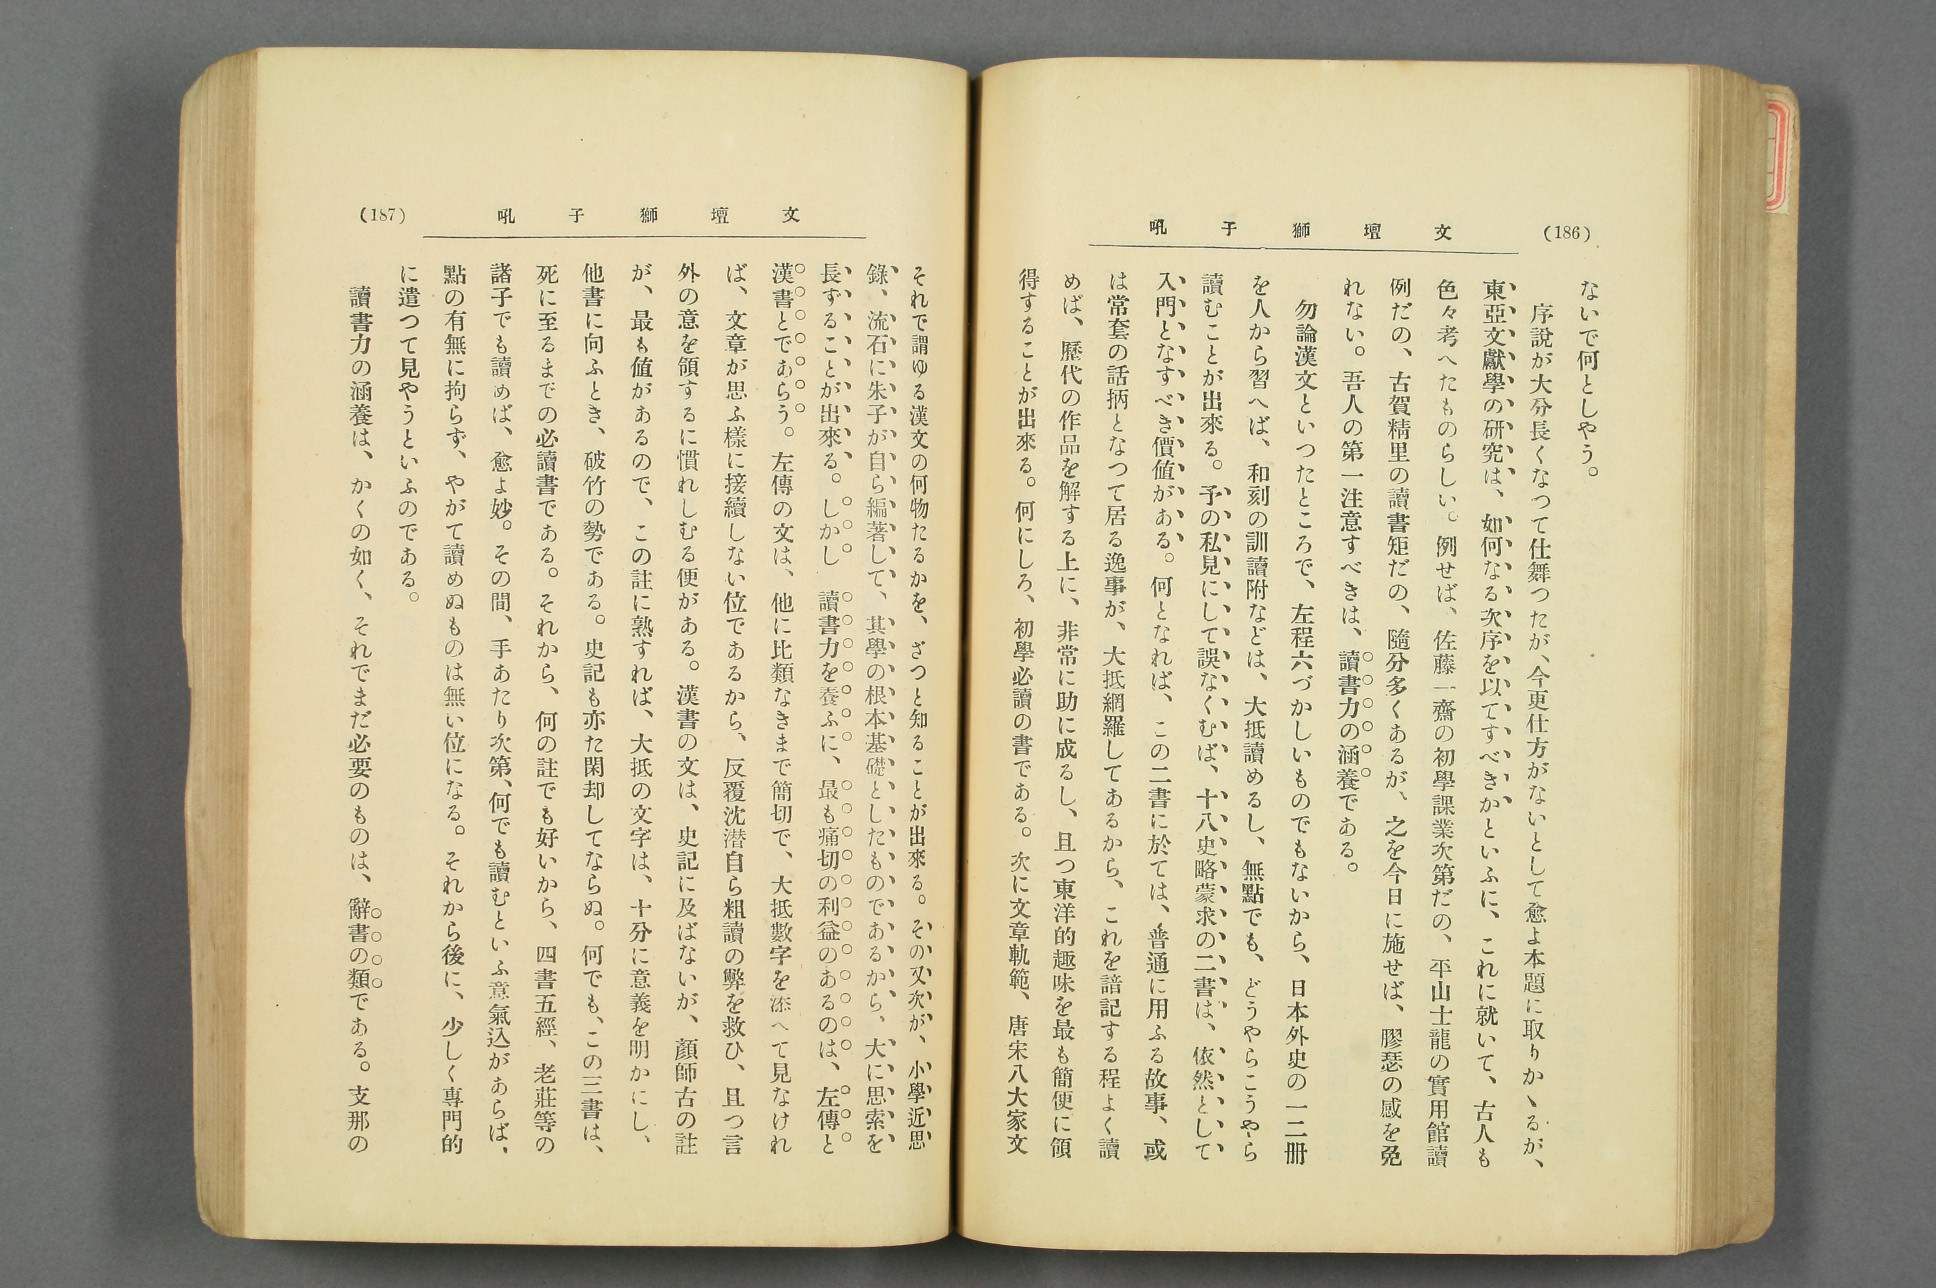 (186)
文壇獅子吼
ないで何としやう。
序說が大分長くなつて仕舞つたが、今更仕方がないとして愈よ本題に取りかゝるが、
東亞文獻學の研究は、如何なる次序を以てすべきかといふに、これに就いて、古人も
色々考へたものらしい。例せば、佐藤一齋の初學課業次第だの、平山士龍の實用館讀
例だの、古賀精里の讀書矩だの、隨分多くあるが、之を今日に施せば、膠瑟の感を免
れない。吾人の第一注意すべきは、讀書力の涵養である。
勿論漢文といつたところで、左程六づかしいものでもないから、日本外史の一二冊
を人から習へば、和刻の訓讀附などは、大抵讀めるし、無點でも、どうやらこうやら
讀むことが出來る。予の私見にして誤なくむば、十八史略蒙求の二書は、依然として
入門となすべき價値がある。何となれば、この二書に於ては、普通に用ふる故事、或
は常套の話柄となつて居る逸事が、大抵網羅してあるから、これを諳記する程よく讀
めば、歷代の作品を解する上に、非常に助に成るし、且つ東洋的趣味を最も簡便に領
得することが出來る。何にしろ、初學必讀の書である。次に文章軌範、唐宋八大家文
(187)
文壇獅子吼
それで謂ゆる漢文の何物たるかを、ざつと知ることが出來る。その又次が、小學近思
錄、流石に朱子が自ら編著して、其學の根本基礎としたものであるから、大に思索を
長ずることが出來る。しかし讀書力を養ふに、最も痛切の利益のあるのは、左傳と
漢書とであらう。左傳の文は、他に比類なきまで簡切で、大抵數字を添へて見なけれ
ば、文章が思ふ樣に接續しない位であるから、反覆沈潜自ら粗讀の弊を救ひ、且つ言
外の意を領するに慣れしむる便がある。漢書の文は、史記に及ばないが、顏師古の註
が、最も値があるので、この註に熟すれば、大抵の文字は、十分に意義を明かにし、
他書に向ふとき、破竹の勢である。史記も亦た閑却してならぬ。何でも、この三書は、
死に至るまでの必讀書である。それから、何の註でも好いから、四書五經、老莊等の
諸子でも讀めば、愈よ妙。その間、手あたり次第、何でも讀むといふ意氣込があらば、
點の有無に拘らず、やがて讀めぬものは無い位になる。それから後に、少しく專門的
に遣つて見やうといふのである。
讀書力の涵養は、かくの如く、それでまだ必要のものは、辭書の類である。支那の